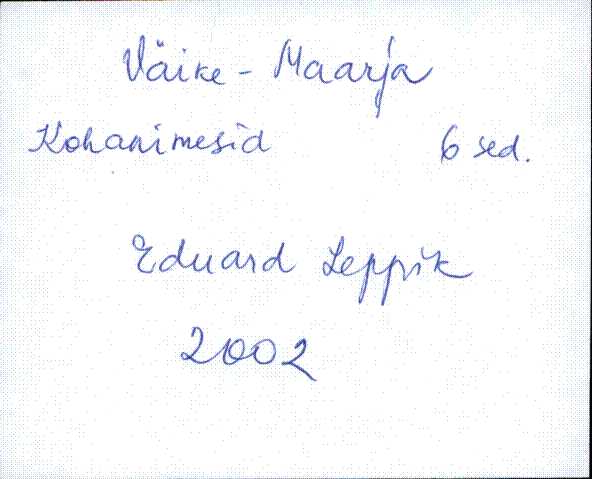 Väike-Maarja
Kohanimesid 6 sed.
Eduard Leppik
2002